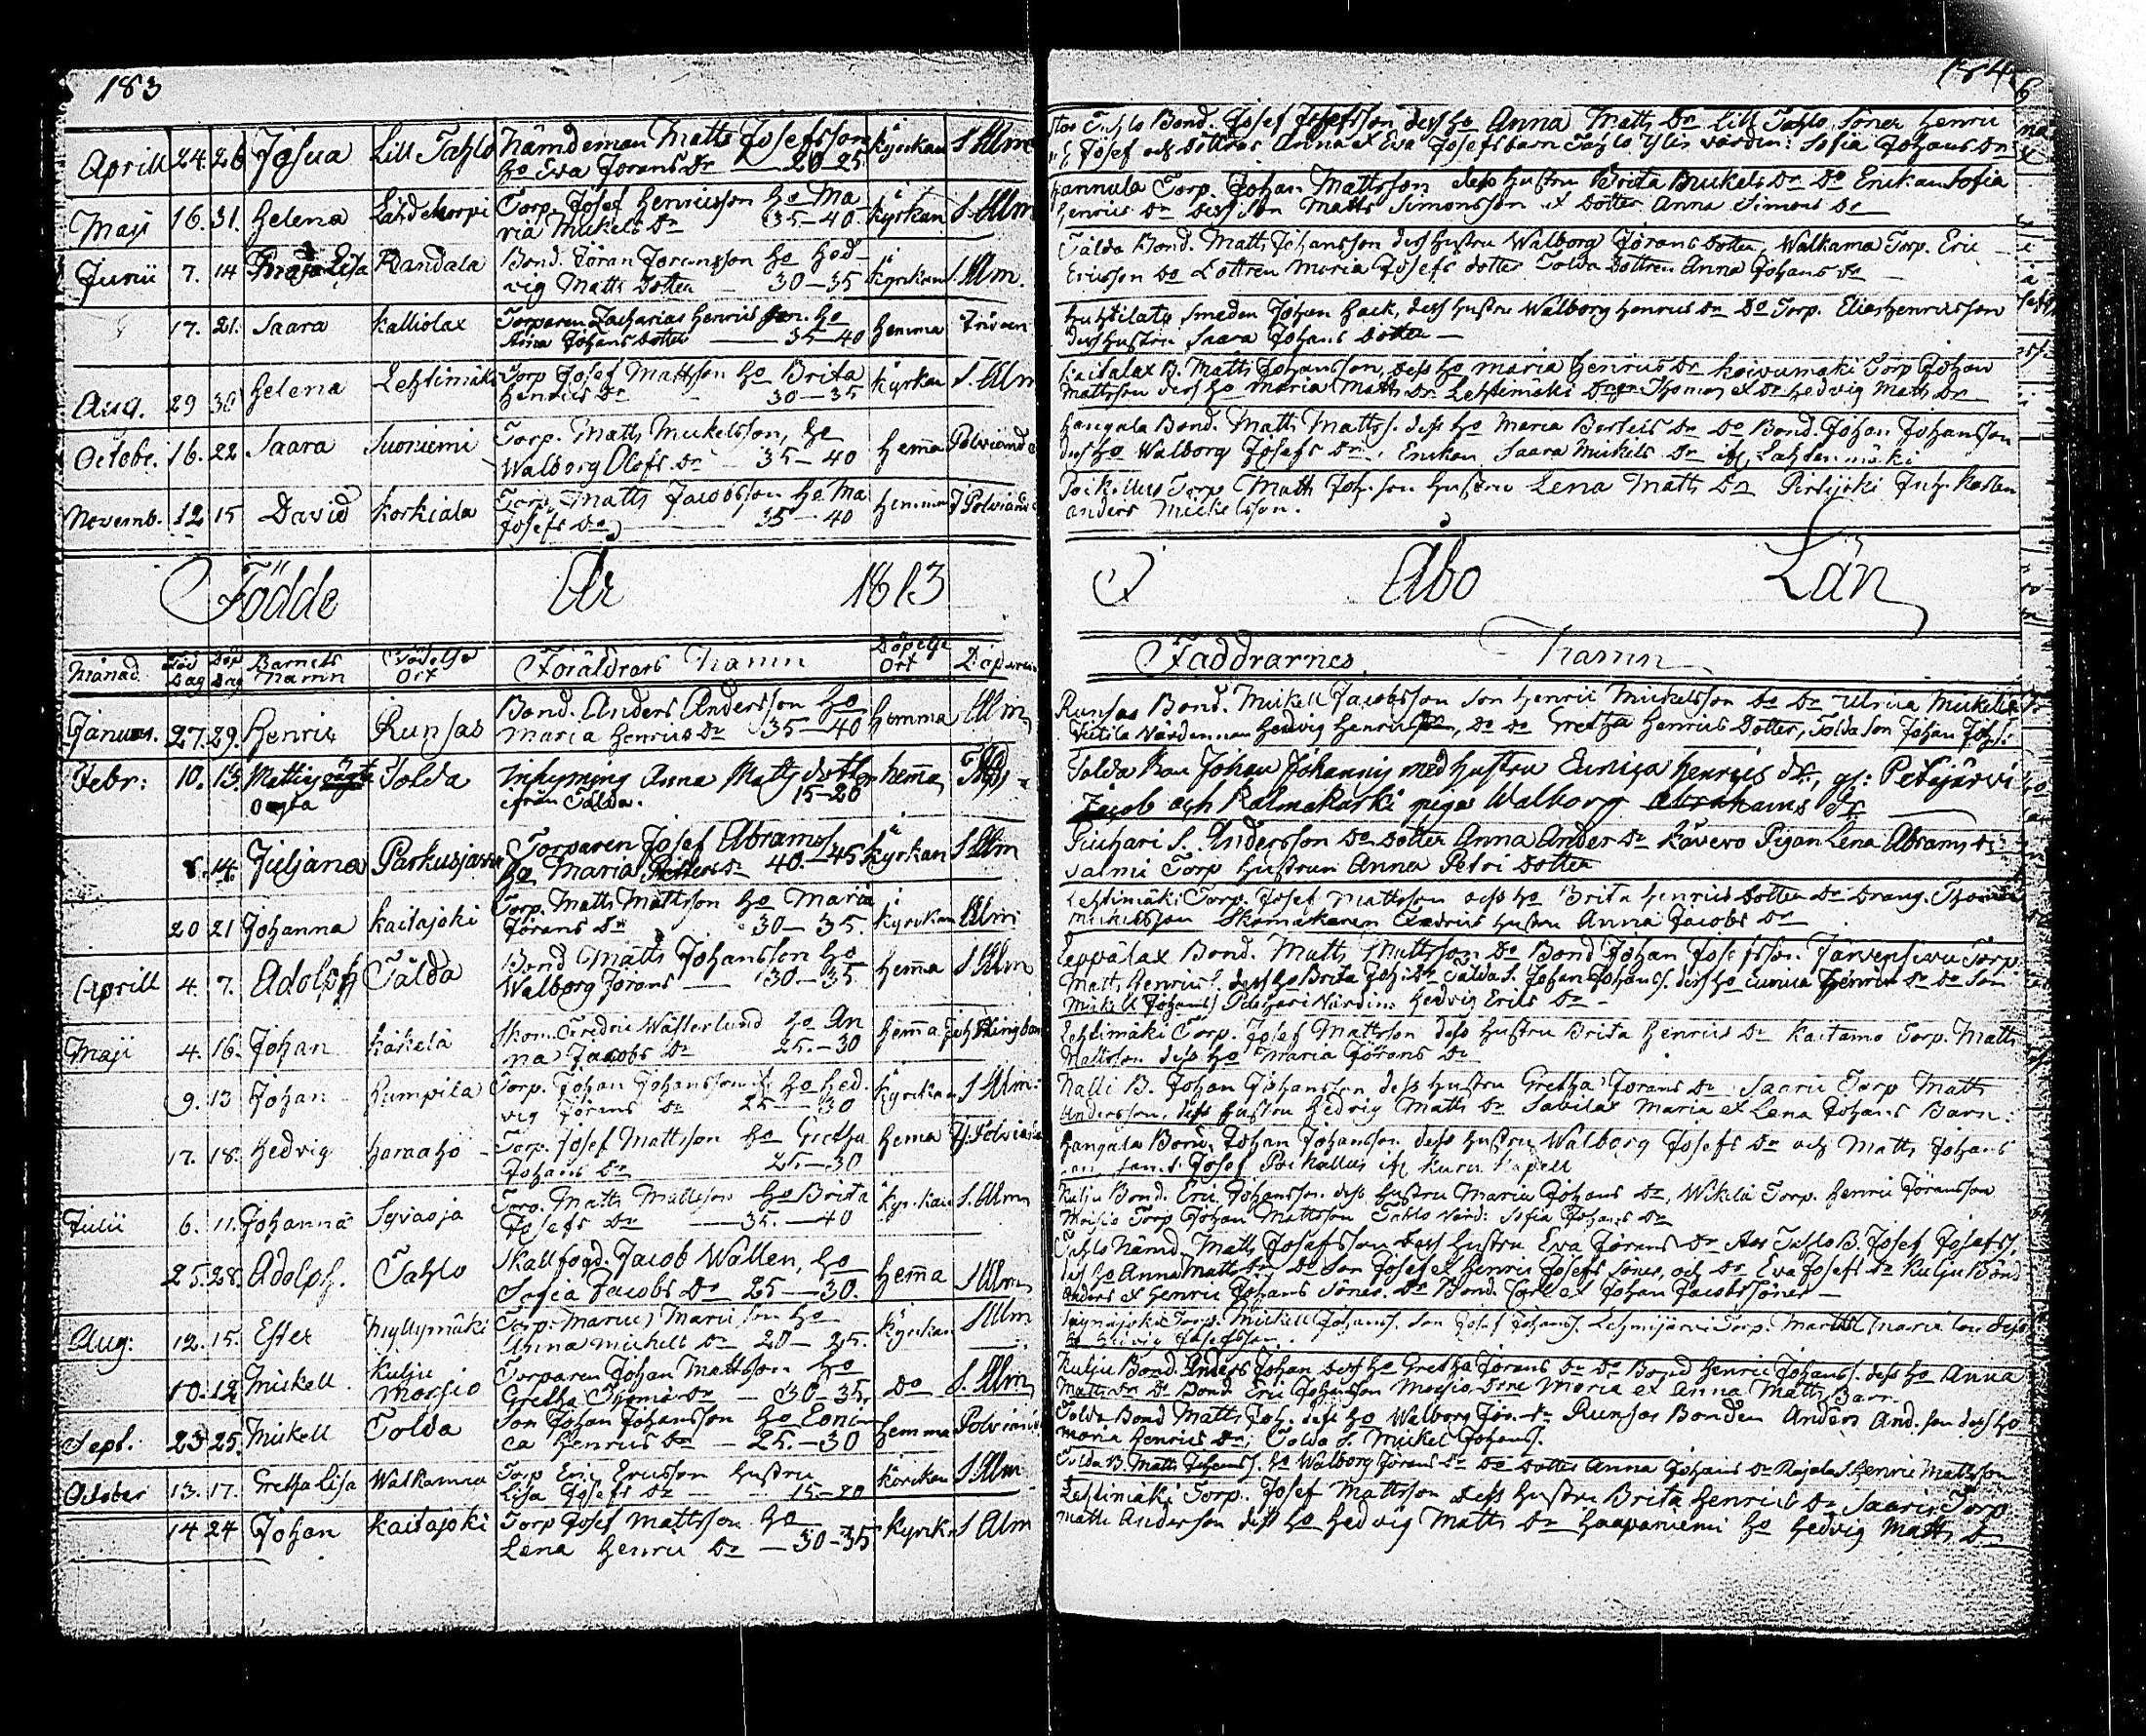 183
Aprill 24. 26 Josua Lill Tahlo Nämndeman Matts Josefsson kyrkan S. Alm
ho Eva Jörans Dr 20-25
Maji 16. 31. Helena Torp. Josef Henricsson ho Ma kyrkan S. Alm
ria Mickels Dr 35-40.
Junii 7. 14 Maja Lisa Randala Bond. Jöran Joransson ho Hed- kyrkan S. Alm.
vig Matts Dotter 30-35
17. 21. Saara Kalliolax Torparen Zacharias Henrics son. ho hemma
Anna Johans Dotter 35-40
Aug. 29 30 Helena Lehtimäki Torp Josef Mattsson ho Brita kyrkan S. Alm
Henrics Dr 30-35
Octobr. 16. 22 Saara Suoniemi Torp. Matts Mickelsson, ho hem̄a Polviander
Walborg Olofs Dr 35-40
Novemb. 12 15 David Korkiala Torp. Matts Jacobsson ho Ma hemma J Polviander
Josefs Dr 35-40
Födde År 1813
Månad Föd Dag Döp Dag Barnets Namn Födelse Ort Föräldrars Namn Döpelse Ort Döparen
Januar. 27. 29. Henric Runsas Bond. Anders Andersson ho hemma Alm
Maria Henrics Dr 35-40
Febr: 10. 13. Mattis oägta Tolda Inhysning Anna Matts dotter hem̄a
oägta ifrån Tälda. 15-20
8. 14. Juljana Parkusjärvi Torparen Josef Abrams kyrkan S Alm
ho Maria 40.-45
20 21 Johanna Kaitajoki Torp. Matts Mattsson ho Maria kyrkan Alm
Jörans Dr 30-35.
Aprill 4. 7. Adolph Tälda Bond Matts Johansson ho hem̄a S Alm
Walborg Jörans 30-35
Maji 4. 16. Johan Käkelä Skom. Fredric Wälterlund ho An hem̄a
na Jacobs Dr 25.-30
9. 13 Johan Rumpila Torp. Johan Johansson ho Hed. kyrkan S Alm.
vig Jörans Dr 25-30
17. 18. Hedvig Haraaho Torp. Josef Mattsson ho Gretha hema J. Polviander
Johans Dr 25-30
Julii 6. 11. Johanna Syvaoja Torp. Matts Mattsson ho Brita kyrkan S. Alm
Josefs Dr 35.-40
25. 28. Adolph. Tahlo Skallfogd. Jacob Wallen, ho hem̄a S Alm
Sofia Jacobs Dr 25-30.
Aug: 12. 15. Ester Myllymäki Torp. Marii son ho kyrkan S Alm
Anna Mickell Dr 20-25.
10. 12 Mickell Kulju Moisio Torparen Johan Mattsson ho Do S. Alm
Gretha Thomæ Dr 30-35.
Sept. 23 25. Mickell Tolda Son Johan Johansson ho Euni hemma Polviander
ca Henrics Dr 25.-30
October 13. 17. Gretha Lisa Walkama Torp Eric Ericsson hustru kÿrckan S. Alm
Lisa Josefs Dr 15-20
14 24 Johan Kaitajoki Torp Josef Mattsson ho kyrkn S Alm
Lena Henric Dr 30-35
184
Tahlo Bond. Josef Josefsson dess ho Anna Matts Dr Lill Tahlo Söner Henric
Josef och Döttrar Anna et Eva Josefs barn Tahlo Sofia Johans Dr
Hannula Torp. Johan Mattsson dess hustru Brita Mickels Dr Do Enkan Sofia
Henrics Dr dess son Matts Simonsson et Dotter Anna Simons Dr
Tälda Bond. Matts Johansson dess hustru Walborg Jörans Dotter, Walkama Torp. Eric
Ericsson Do Dottren Maria Josefs dotter Tolda Dottren Anna Johans Dr
Smeden Johan Hack, dess hustru Walborg Henrics Dr Do Torp. Elias Henricsson
dess hustru Saara Johans Dotter
Kaitalax B. Matts Johansson, dess ho Maria Henrics Dr Koivumäki Torp Johan
Mattsson dess ho Maria Matts Dr Lehtimäki Drän Thomas et Dr Hedvig Matts Dr
Hangala Bond. Matts Matts. dess ho Maria Bertils Dr Do Bond. Johan Johansson
dess ho Walborg Josefs Dr. Enkan Saara Mickels Dr
Poikellus Torp Matts Joh. son hustru Lena Matts Dr
Anders Mickelsson.
I Åbo Län
Faddrarnes Namn
Runsas Bond. Mickell Jacobsson son Henric Mickelsson Do Dr Ulrica Mickels Dr
Hedvig Henrics Dr, Do Do Gretha Henrics Dotter, Tolda Son Johan Joh.
Tolda Bon Johan Johannis med hustru Eunica Henrics dr, gs: Petäjärvi
Jacob och Kalmakurki piga Walborg Abrahams dr
S. Andersson Do Dotter Anna Anders Dr Kävero Pigan Lena Abrams Dr
salmi Torp hustrun Anna Petri Dotter
Lehtimäki Torp. Josef Mattsson dess ho Brita Henrics Dotter Do Dräng. Thomas
Mickelsson Skomakaren hustru Anna Jacobs Dr
Leppälax Bond. Matts Mattsson Do Bond Johan Josefsson. Järvensivu Torp.
Matts Henrics. dess ho Brita Joh. Dr Tälda S. Johan Johans. dess ho Eunica Henrics Dr Do Son
Mickel Johans. Hedvig Erics Dr
Lehtimäki Torp. Josef Mattsson dess hustru Brita Henrics Dr Kaitamo Torp. Matts
Mattsson dess ho Maria Jörans Dr
Nalli B. Johan Johansson dess hustru Gretha Jorans Dr Saario Torp Matts
Andersson, dess hustru Hedvig Matts Dr Savilax Maria et Lena Johans Barn.
Hangala Bond. Johan Johansson dess hustru Walborg Josefs Dr och Matts Johans
Josef Poikallus if. Kuru Kapell
Kulju Bond. Eric Johansson dess hustru Maria Johans Dr, Wikilä Torp. Henric Jöransson
Moisio Torp Johan Mattsson Tahlo Värd: Sofia Johans Dr
Tahlo Nämd. Matts Josefsson dess hustru Eva Jörans Dr Tahlo B. Josef Josefss.
dess ho Anna Matts Dr Do Son Josef et Henric Josefs söner, och Dr Eva Josefs Dr Kulju Bond
Anders et Henric Johans Söner. Do Bond. et Johan Jacobs söner
Torp. Mickell Johans. son Josef Johans. Lehmijärvi Torp.
Kulju Bond. Anders Johan dess ho Gretha Jörans Dr Do Bond Henric Johans. dess ho Anna
Matts Dr Do Bond Eric Johansson Moisio Maria et Anna Matts Barn
Tolda Bond Matts Joh. dess ho Walborg Jör. Dr Runsas Bonden Anders And. son dess ho
Maria Henrics Dr, Tolda S. Mickel Johans.
Tolda B. Matts Johans. ho Walborg Jörans Dr Do Dotter Anna Johans Dr Rajala S. Henric Mattsson
Lehtimäki Torp. Josef Mattsson dess hustru Brita Henrics Dr Saario Torp
Matts Anderson dess ho Hedvig Matts Dr Haapaniemi ho Hedvig Matts Dr